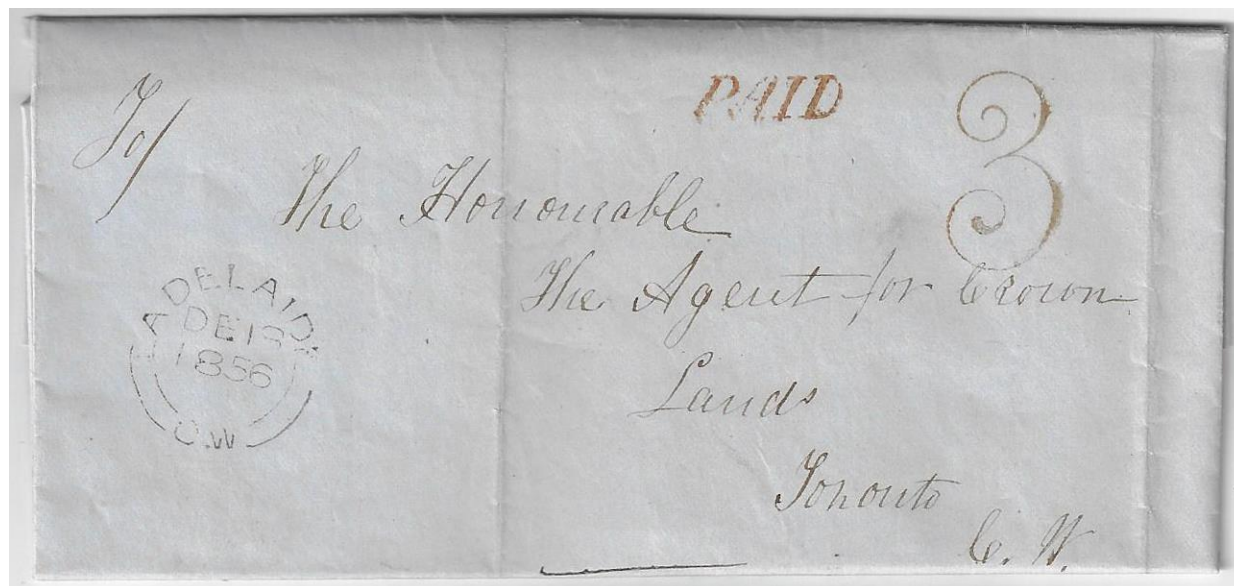 To/
PAID
3
The Honourable
The Agent for Crown
Lands
Toronto
C. W.
ADELAIDE
DE
1856
C.W